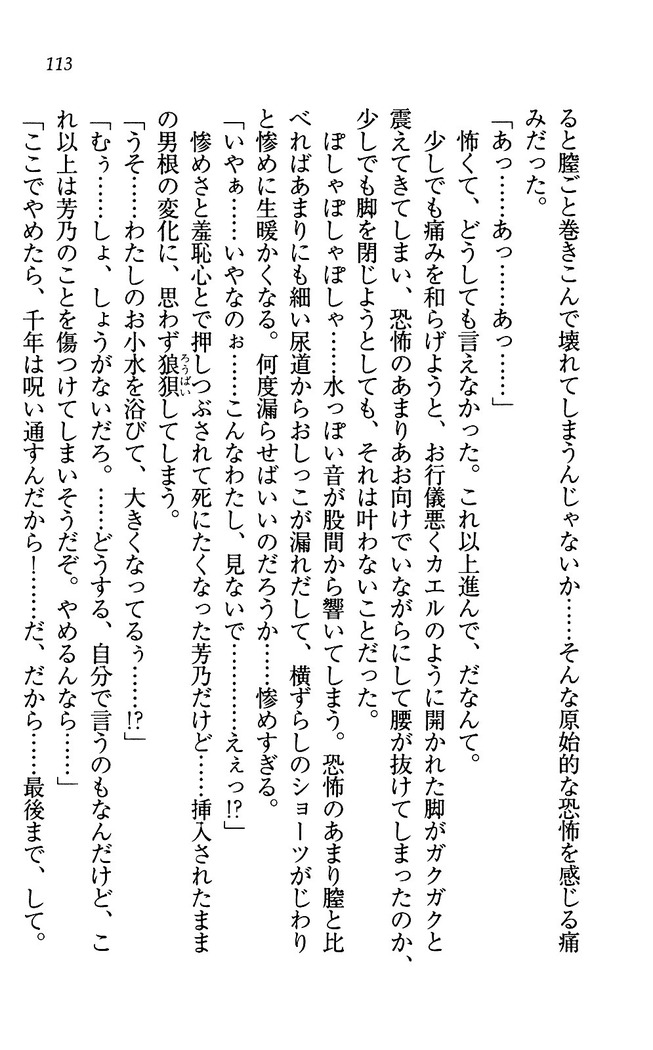 113
ると膣ごと巻きこんで壊れてしまうんじゃないか……そんな原始的な恐怖を感じる痛
みだった。
「あっ……あっ……あっ……」
怖くて、どうしても言えなかった。これ以上進んで、だなんて。
少しでも痛みを和らげようと、お行儀悪くカエルのように開かれた脚がガクガクと
震えてきてしまい、恐怖のあまりあお向けでいながらにして腰が抜けてしまったのか、
少しでも脚を閉じようとしても、それは叶わないことだった。
ぽしゃぽしゃぽしゃ……水っぽい音が股間から響いてしまう。恐怖のあまり膣と比
べればあまりにも細い尿道からおしっこが漏れだして、横ずらしのショーツがじわり
と惨めに生暖かくなる。何度漏らせばいいのだろうか……惨めすぎる。
「いやぁ……いやなのぉ……こんなわたし、見ないで…………えぇっ!?」
惨めさと羞恥心とで押しつぶされて死にたくなった芳乃だけど……挿入されたまま
の男根の変化に、思わず狼狽ろうばいしてしまう。
「うそ……わたしのお小水を浴びて、大きくなってるぅ……!?」
「むぅ……しょ、しょうがないだろ。……どうする、自分で言うのもなんだけど、こ
れ以上は芳乃のことを傷つけてしまいそうだぞ。やめるんなら……」
「ここでやめたら、千年は呪い通すんだから！……だ、だから……最後まで、して。